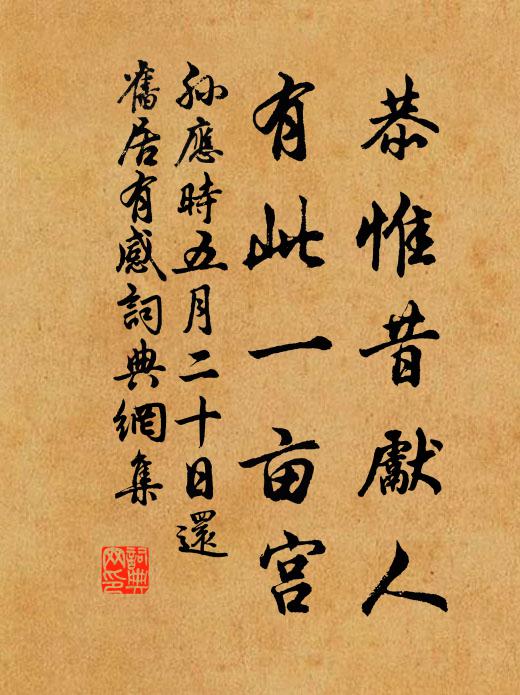 恭惟昔獻人
有此一亩宫
孙應時五月二十日還
舊居有感詞典網集
詞典
网印